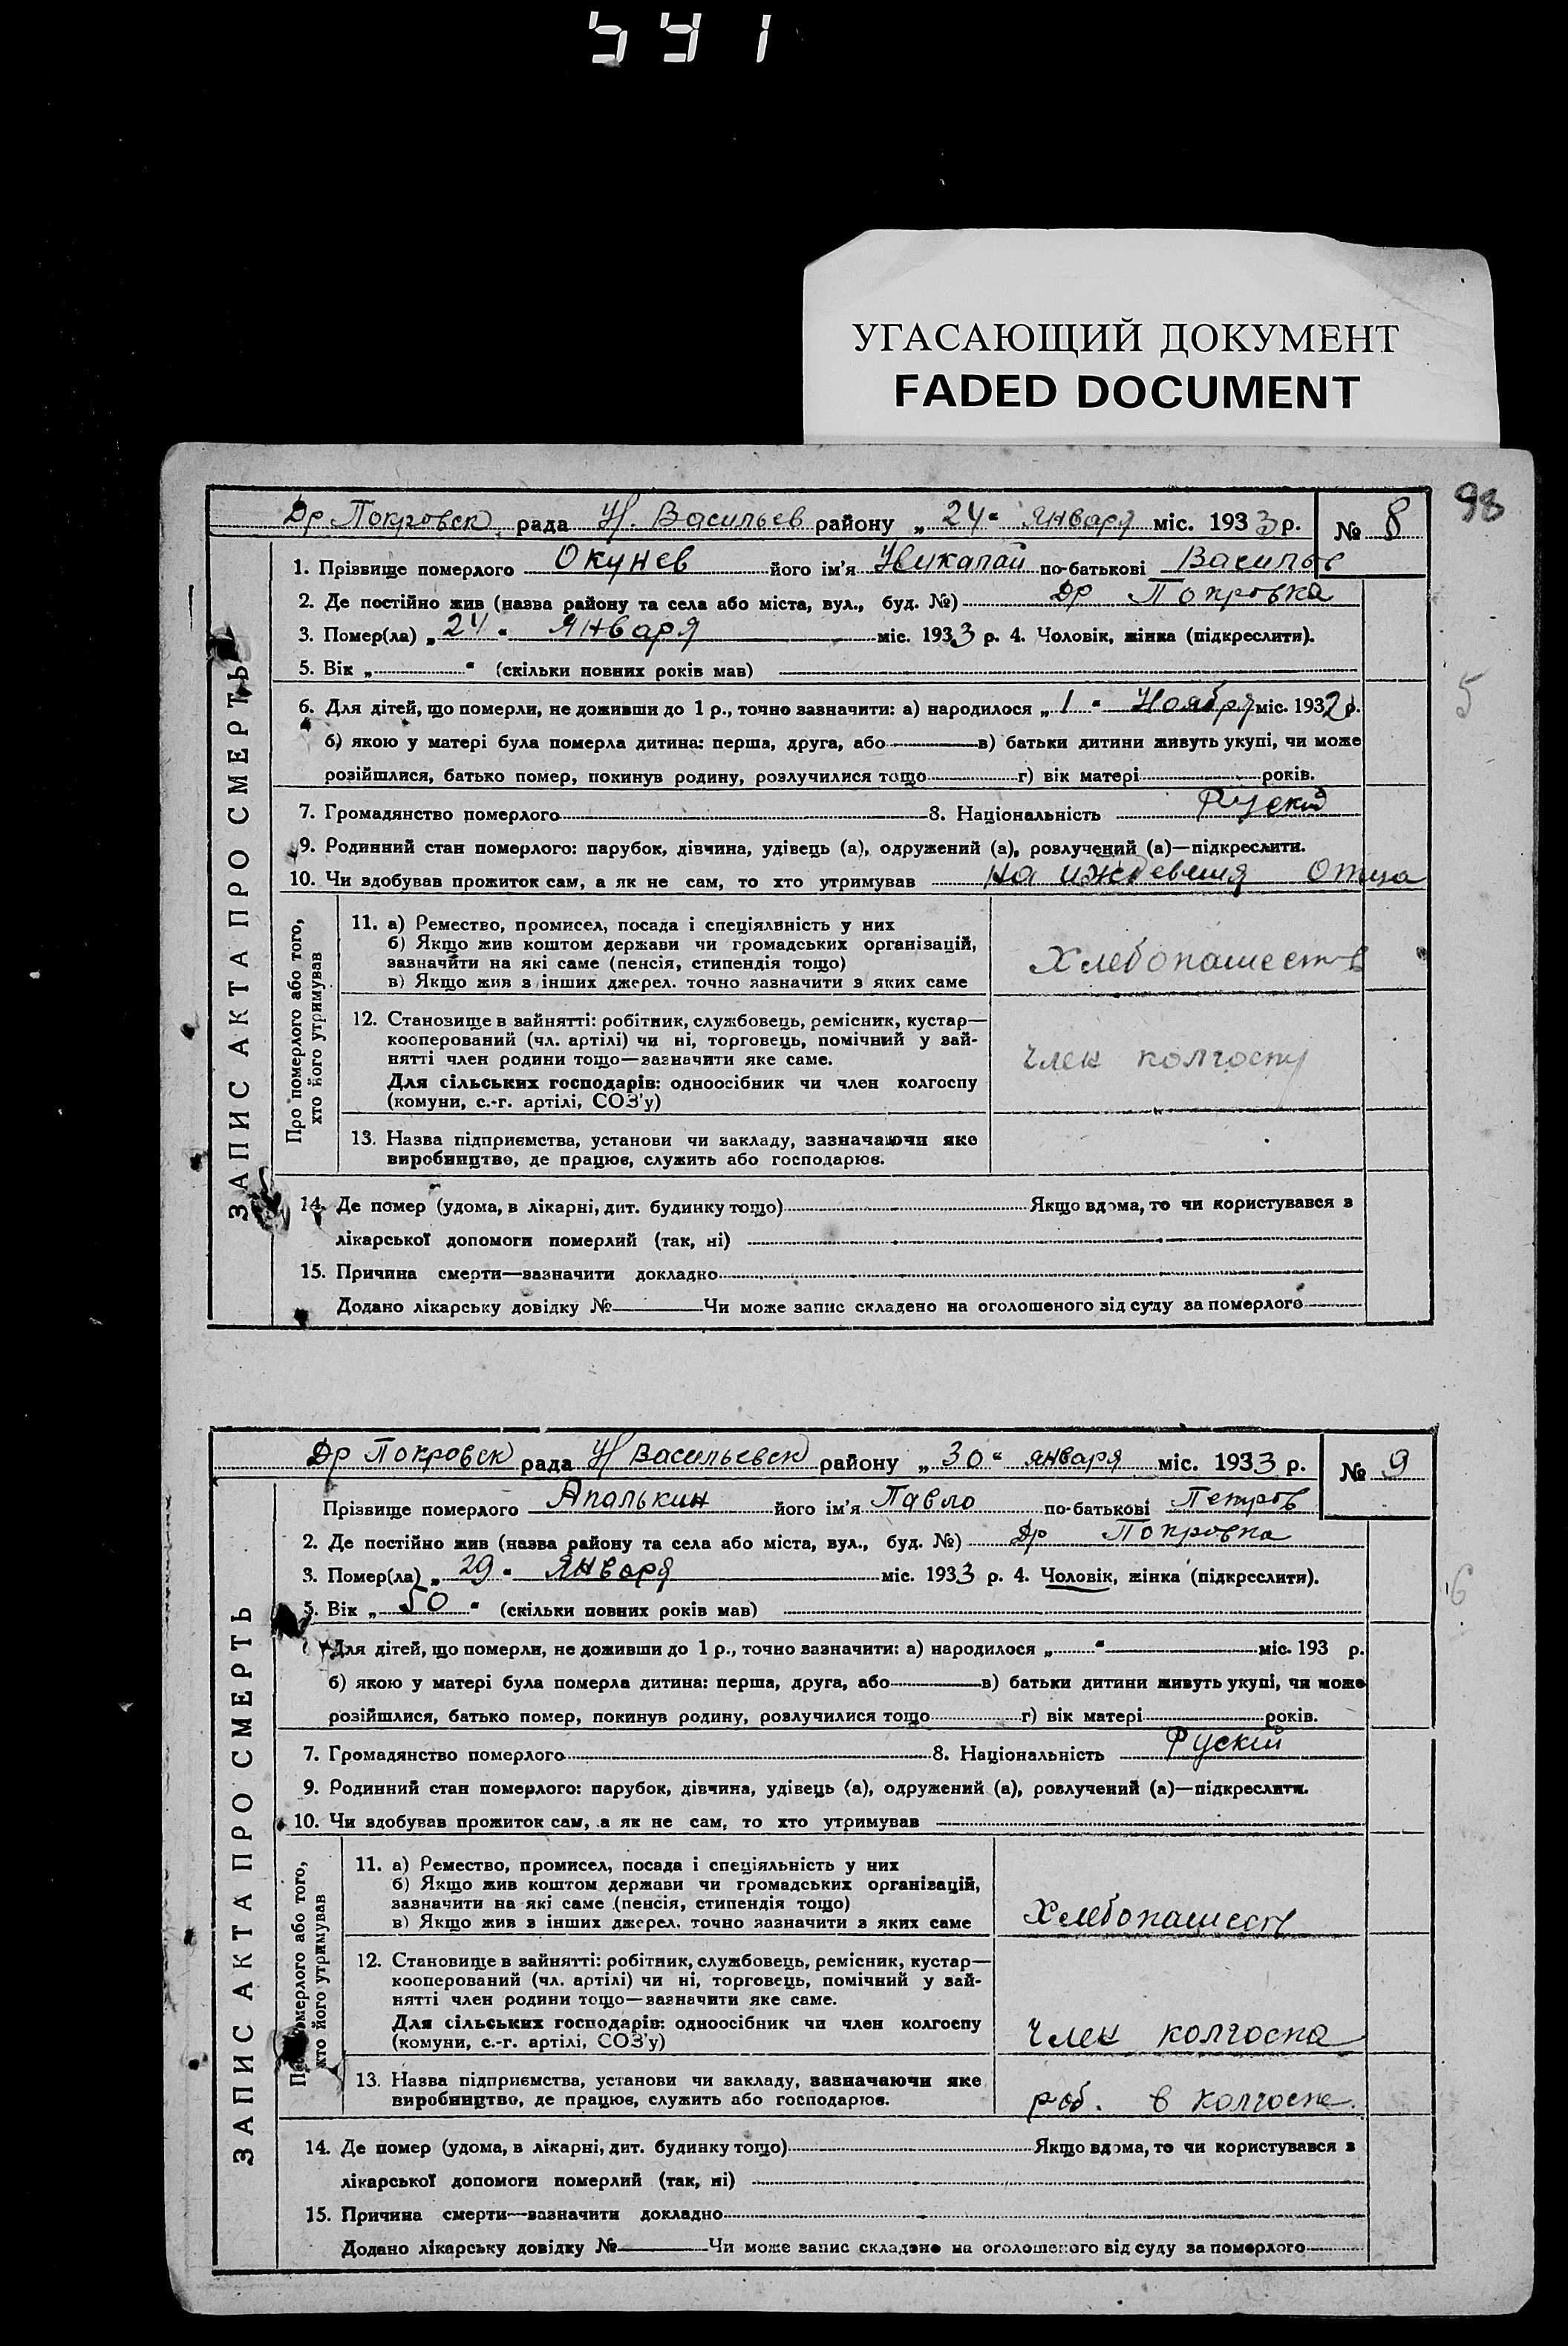 591
УГАСАЮЩИЙ ДОКУМЕНТ
FADED DOCUMENT
93
Др Покровск рада Н. Васильев району „ 24 “ января міс. 1933 р. № 8
1. Прізвище померлого Окунев його ім’я Никалай по-батькові Васильев
2. Де постійно жив (назва району та села або міста, вул., буд. №) Др Покровка
3. Помер(ла) „ 24 “ января міс. 1933 р. 4. Чоловік, жінка (підкреслити).
5. Вік „ “ (скільки повних років мав)
5
6. Для дітей, що померли, не доживши до 1 р., точно зазначити: а) народилося „ 1 “ Ноября міс. 1932 р.
б) якою у матері була померла дитина: перша, друга, або в) батьки дитини живуть укупі, чи може
розійшлися, батько помер, покинув родину, розлучилися тощо г) вік матері років.
7. Громадянство померлого 8. Національність Руский
9. Родинний стан померлого: парубок, дівчина, удівець (а), одружений (а), розлучений (а)—підкреслити.
10. Чи здобував прожиток сам, а як не сам, то хто утримував на иждевения Отца
ЗАПИС АКТА ПРО СМЕРТЬ
Про померлого або того, хто його утримував
11. а) Ремество, промисел, посада і спеціяльність у них
б) Якщо жив коштом держави чи громадських організацій,
зазначити на які саме (пенсія, стипендія тощо)
в) Якщо жив з інших джерел. точно зазначити з яких саме
Хлебопашеств
12. Становище в зайнятті: робітник, службовець, ремісник, кустар—
кооперований (чл. артілі) чи ні, торговець, помічний у зай-
нятті член родини тощо—зазначити яке саме.
Для сільських господарів: одноосібник чи член колгоспу
(комуни, с.-г. артілі, СОЗ’у)
член колгоспу
13. Назва підприємства, установи чи закладу, зазначаючи яке
виробництво, де працює, служить або господарює.
14. Де помер (удома, в лікарні, дит. будинку тощо) Якщо вдома, то чи користувався з
лікарської допомоги померлий (так, ні)
15. Причина смерти—зазначити докладно
Додано лікарську довідку № Чи може запис складено на оголошеного від суду за померлого
Др Покровск рада Н Васильевск району „ 30 “ января міс. 1933 р. № 9
Прізвище померлого Апалькин його ім’я Павло по-батькові Петров
2. Де постійно жив (назва району та села або міста, вул., буд. №) Др Покровка
3. Помер(ла) „ 29 “ января міс. 1933 р. 4. Чоловік, жінка (підкреслити).
5. Вік „ 50 “ (скільки повних років мав)
6
Для дітей, що померли, не доживши до 1 р., точно зазначити: а) народилося „ “ міс. 193 р.
б) якою у матері була померла дитина: перша, друга, або в) батьки дитини живуть укупі, чи може
розійшлися, батько помер, покинув родину, розлучилися тощо г) вік матері років.
7. Громадянство померлого 8. Національність Руский
9. Родинний стан померлого: парубок, дівчина, удівець (а), одружений (а), розлучений (а)—підкреслити.
10. Чи здобував прожиток сам, а як не сам, то хто утримував
ЗАПИС АКТА ПРО СМЕРТЬ
померлого або того, хто його утримував
11. а) Ремество, промисел, посада і спеціяльність у них
б) Якщо жив коштом держави чи громадських організацій,
зазначити на які саме (пенсія, стипендія тощо)
в) Якщо жив з інших джерел. точно зазначити з яких саме
Хлебопашеств
12. Становище в зайнятті: робітник, службовець, ремісник, кустар—
кооперований (чл. артілі) чи ні, торговець, помічний у зай-
нятті член родини тощо—зазначити яке саме.
Для сільських господарів: одноосібник чи член колгоспу
(комуни, с.-г. артілі, СОЗ’у)
член колгоспа
13. Назва підприємства, установи чи закладу, зазначаючи яке
виробництво, де працює, служить або господарює.
роб. в колгоспе.
14. Де помер (удома, в лікарні, дит. будинку тощо) Якщо вдома, то чи користувався з
лікарської допомоги померлий (так, ні)
15. Причина смерти—зазначити докладно
Додано лікарську довідку № Чи може запис складено на оголошеного від суду за померлого